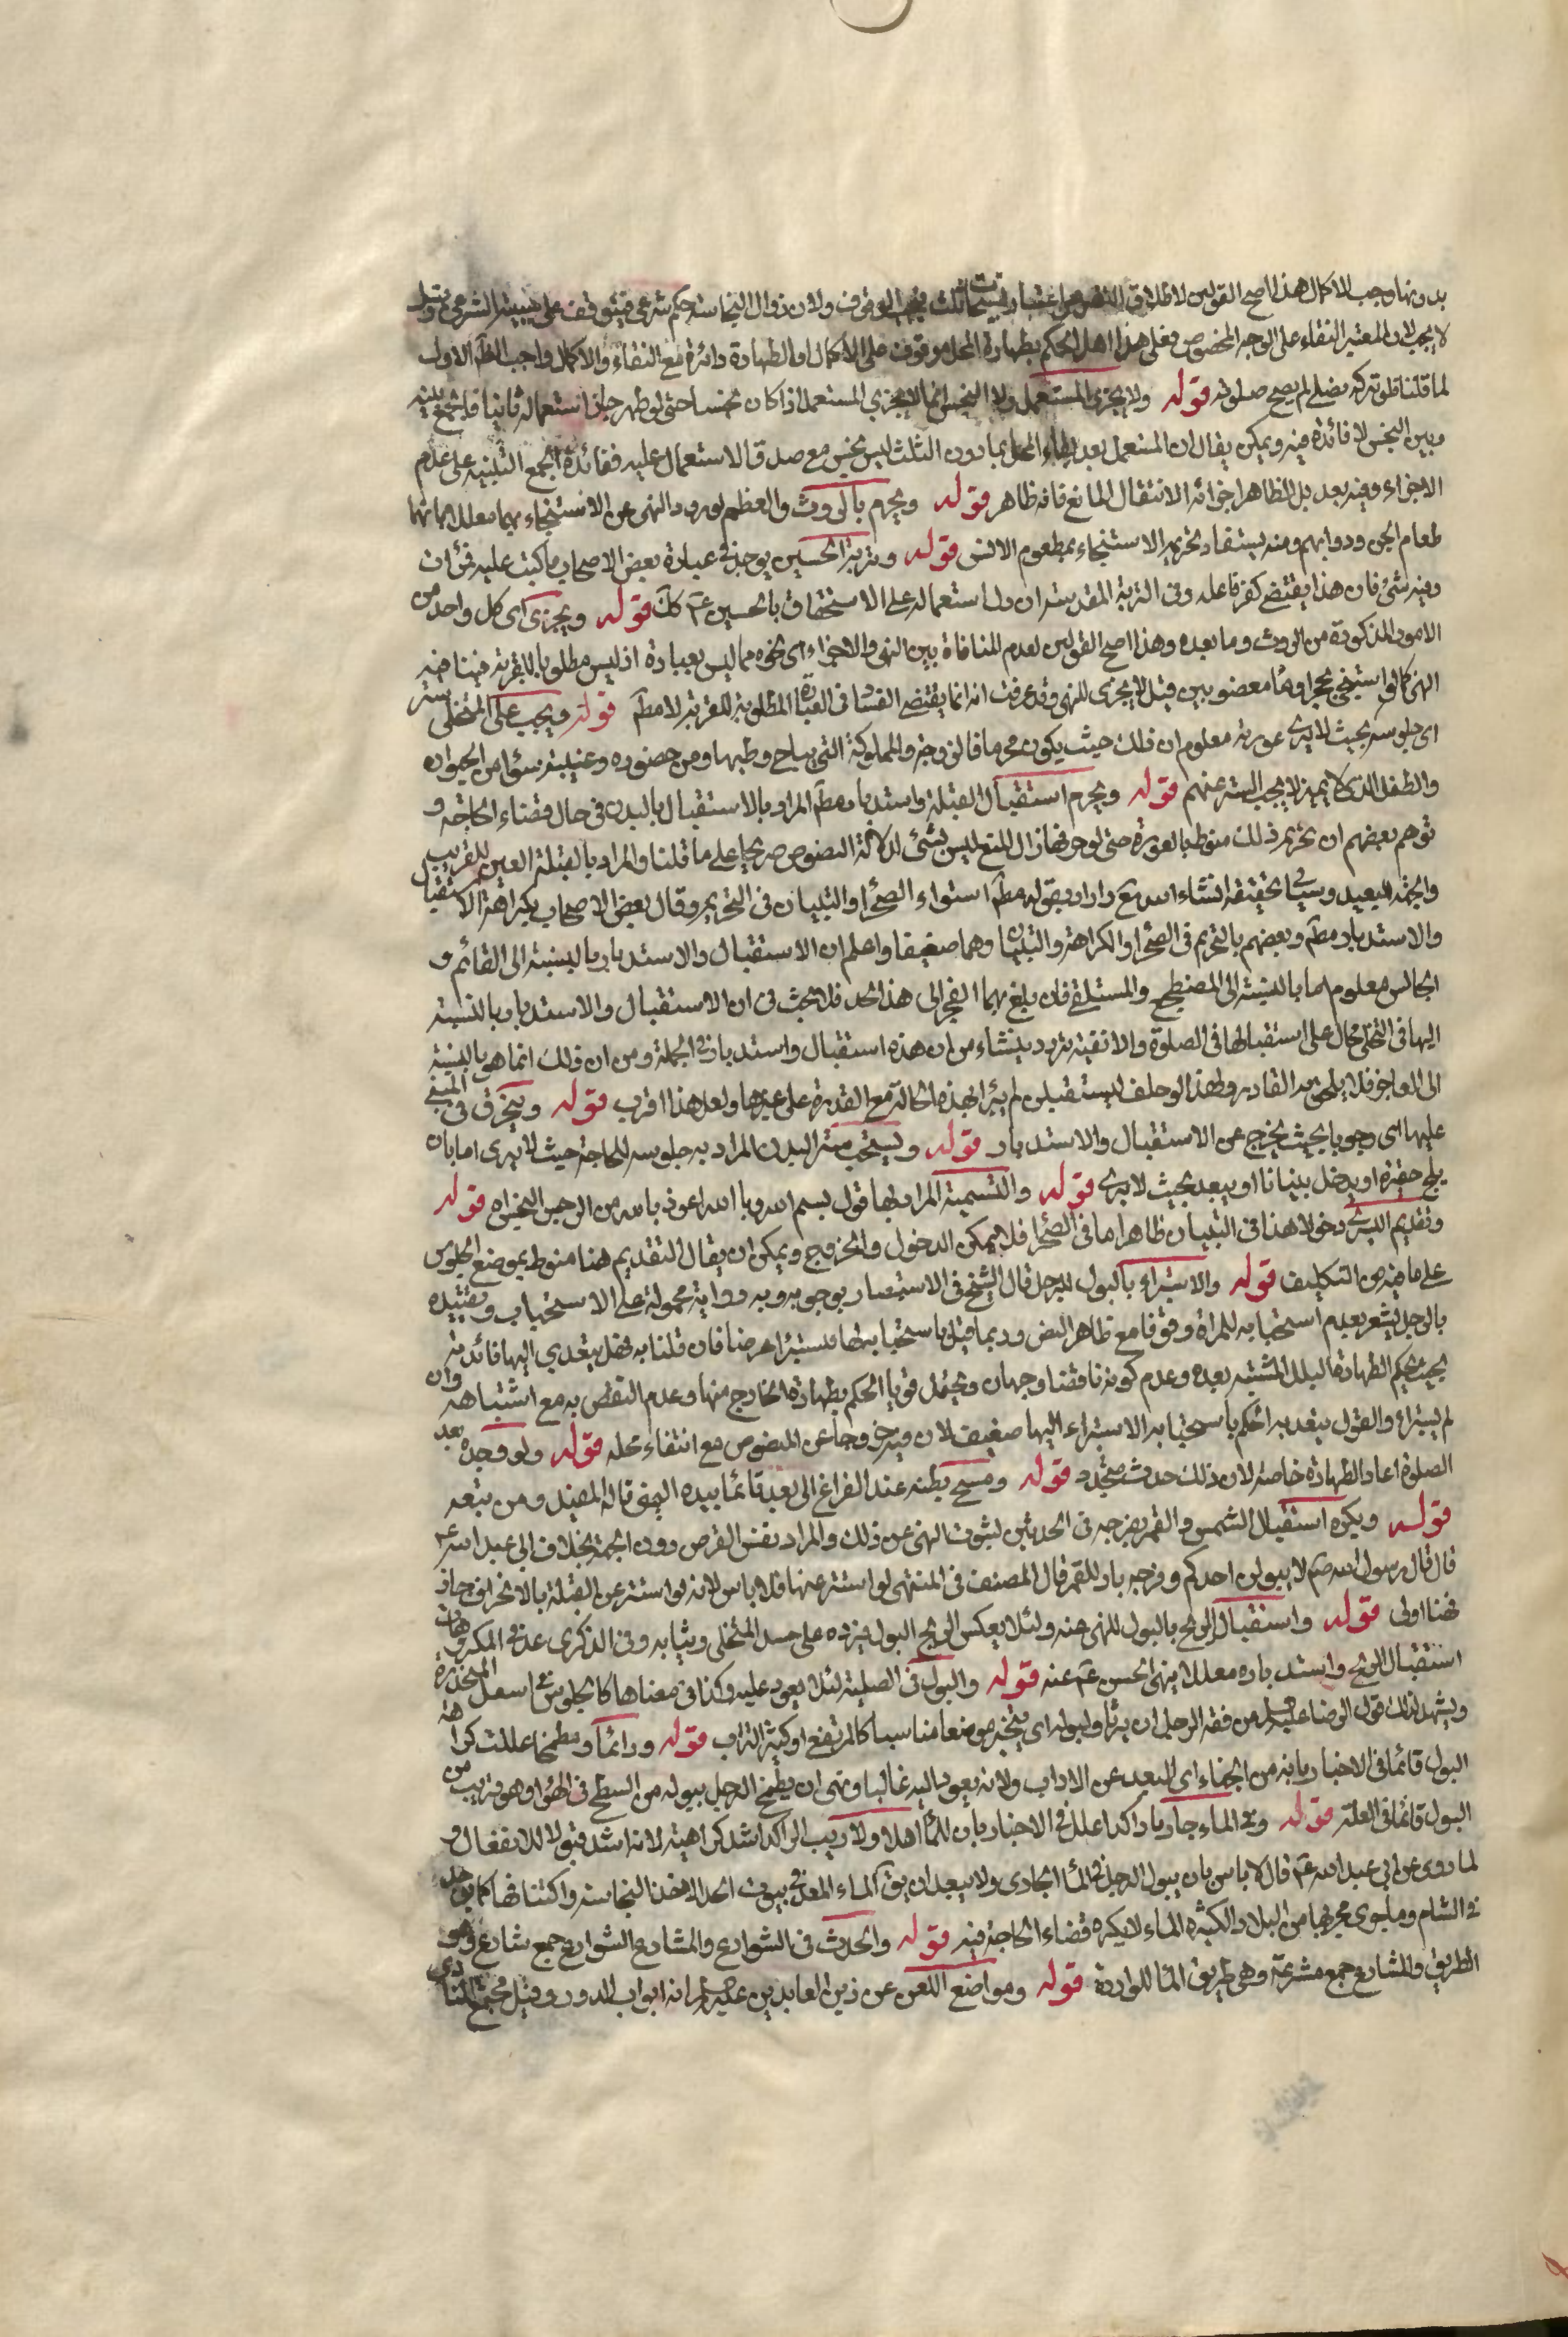 بدونها وجب الاكمال هذا اصح القولين لاطلاق النصوص اعتبار مسحات ثلث فيجب الوقوف ولان زوال النجاسة حكم شرعي فيتوقف على سببه الشرعي وقيل
لا يجب لان المعتبر النقاء على الوجه المخصوص فعلى هذا هل الحكم بطهارة المحل موقوف على الاكمال ام الطهارة دائرة مع النقاء والاكمال واجب الظاهر الاول
لما قلنا فلو تركه فصلى لم يصح صلوته قوله ولا يجزي المستعمل ولا النجس انما لا يجزي المستعمل اذا كان نجسا حتى لو طهر جاز استعماله ثانيا فالجمع بينه
وبين النجس لا فائدة فيه ويمكن يقال ان المستعمل بعد نقاء المحل بما دون الثلث ليس بنجس مع صدق الاستعمال عليه ففائدة الجمع التنبيه على عدم
الاجزاء وفيه بعد بل الظاهر اجزائه الانتقال المانع فانه ظاهر قوله ويحرم بالروث والعظم لورود النهي عن الاستنجاء بهما معللا بانهما
طعام الجن ودوابهم ومنه يستفاد تحريم الاستنجاء بمطعوم الانس قوله وتربة الحسين يوجد في عبارة بعض الاصحاب ما كتب عليه قرآن
وفيه شئ فان هذا يقتضي كفر فاعله وفي التربة المقدسة ان دل استعماله على الاستخفاف بالحسين ع كك قوله ويجزي اي كل واحد من
الامور المذكورة من الروث وما بعده وهذا اصح القولين لعدم المنافاة بين النهي والاجزاء اي نحوه مما ليس بعبادة اذ ليس مطلوبا للقربة فينافيه
النهي كما لو استنجى بحجر او ماء مغصوبين قيل لا يجزي للنهي وقد عرفت انه انما يقتضي الفساد في العبادة المطلوبة للقربة لا مط قوله ويجب على المتخلي ستر
اي جلوسه بحيث لا يرى عورته معلوم ان ذلك حيث يكون محرما فالزوجة والمملوكة التي يباح وطيها ومن حضوره وغيبته سواء من الحيوان
والطفل الذي لا يميز لا يجب الستر عنهم قوله ويحرم استقبال القبلة واستدبارها مط المراد بالاستقبال بالبدن في حال قضاء الحاجة و
توهم بعضهم ان تحريم ذلك منوط بالعورة حتى لو حرفها زال المنع ليس بشئ لدلالة النصوص صريحا على ما قلنا والمراد بالقبلة العين للقريب
والجهة للبعيد وسيأتي تحقيقه انشاء الله تع واراد بقوله مط استواء الصحراء والبنيان في التحريم وقال بعض الاصحاب بكراهة الاستقبال
والاستدبار مط وبعضهم بالتحريم في الصحراء والكراهة والبنيان وهما ضعيفا واعلم ان الاستقبال والاستدبار بالنسبة الى القائم و
الجالس معلوم اما بالنسبة الى المضطجع والمستلقي فان بلغ بهما العجز الى هذا الحد فلا بحث في ان الاستقبال والاستدبار بالنسبة
اليها في التخلي محال على استقبالها في الصلوة والا ففيه تردد ينشاء من ان هذه استقبال واستدبار في الجملة ومن ان ذلك انما هو بالنسبة
الى العاجز فلا يلحق به القادر ولهذا لو حلف ليستقبلن لم يبرأ بهذه الحالة مع القدرة على غيرها ولعل هذا اقرب قوله وينحرف في المبني
عليها اي وجوبا بحيث يخرج عن الاستقبال والاستدبار قوله ويستحب ستر البدن المراد به جلوسه للحاجة حيث لا يرى اما بان
يلج حفيرة او يدخل بنيانا او يبعد بحيث لا يرى قوله والتسمية المراد بها قول بسم الله وبالله اعوذ بالله من الرجس النجس الخ قوله
وتقديم اليسرى دخولا هذا في البنيان ظاهر اما في الصحراء فلا يمكن الدخول والخروج ويمكن ان يقال التقديم هنا منوط بموضع الجلوس
على ما فيه من التكليف قوله والاستبراء بالبول للرجل قال الشيخ في الاستبصار بوجوبه وبه رواية محمولة على الاستحباب وتقييده
بالرجل يشعر بعدم استحبابه للمراة وقوفا مع ظاهر النص وربما قيل باستحبابه لها فتستبرئ عرضا فان قلنا به فهل يتعدي اليها فائدته
بحيث يحكم الطهارة البلل المشتبه بعده وعدم كونه ناقضا وجهان ويحتمل قويا الحكم بطهارة الخارج منها وعدم النقض به مع اشتباهه وان
لم يستبرأ والقول بتعديه الحكم باستحبابه الاستبراء اليها ضعيف لان فيه خروجا عن المنصوص مع انتفاء محله قوله ولو وجده بعد
الصلوة اعاد الطهارة خاصة لان ذلك حدث متجدد قوله ومسح بطنه عند الفراغ اي بعد قائما بيده اليمنى قاله المفيد ومن تبعه
قوله ويكره استقبال الشمس والقمر بفرجه في الحدثين لثبوت النهي عن ذلك والمراد نفس القرص دون الجهة بخلاف الى عبد الله ع
قال قال رسول الله ص لا يبولن احدكم وفرجه باد للقمر قال المصنف في المنتهى لو استتر عنها فلا باس لانه لو استتر عن القبلة بالانحراف جاز
فهنا اولى قوله واستقبال الريح بالبول للنهي عنه ولئلا يعكس الريح البول فيرده على جسد المتخلي وثيابه وفي الذكرى عد من المكروهات
استقبال الريح واستدباره معللا بنهي الحسن ع عنه قوله والبول في الصلبة لئلا يعود عليه وكذا في معناها كالجلوس في اسفل المنحدرة
ويشهد لذلك قول الرضا عليه السلم من فقه الرجل ان يرتاد لبوله اي يتخير موضعا مناسبا كالمرتفع او كثير التراب قوله وقائما ومطمحا عللت كراهة
البول قائما في الاخبار بانه من الجفاء اي البعد عن الاداب ولانه يعود اليه غالبا ونهى ان يطمح الرجل ببوله من السطح في الهواء وهو قريب من
البول قائما في العلة قوله وفي الماء جاريا وراكدا علل في الاخبار بان للماء اهلا ولا ريب الراكد اشد كراهية لانه اشد قبولا للانفعال و
لما روي عن ابي عبد الله ع قال لا باس بان يبول الرجل في الماء الجاري ولا يبعد ان يق الماء المعد في بيوت الخلاء لاخذ النجاسة واكتنافها كما يوجد
في الشام وما جرى مجريها من البلاد الكثيرة الماء لا يكره قضاء الحاجة فيه قوله والحدث في الشوارع والمشارع الشوارع جمع شارع وهو
الطريق والمشارع جمع مشرعة وهي طريق الماء للواردة قوله ومواضع اللعن عن زين العابدين عليه السلم انه ابواب الدور وقيل مجتمع النادي